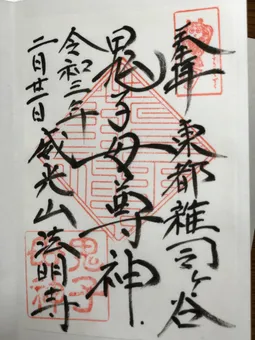 奉拝 東都雑司ヶ谷
鬼子母尊神
令和三年
二月廿一日 威光山法明寺
鬼子